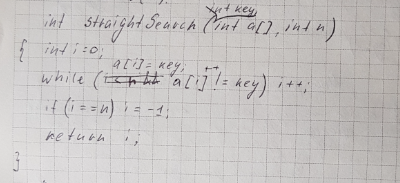 int key,
int straightSearch (int a[], int n)
{ int i=0;
a[i]=key;
while (a[i]++ != key) i++;
if (i==n) i=-1;
return i;
}